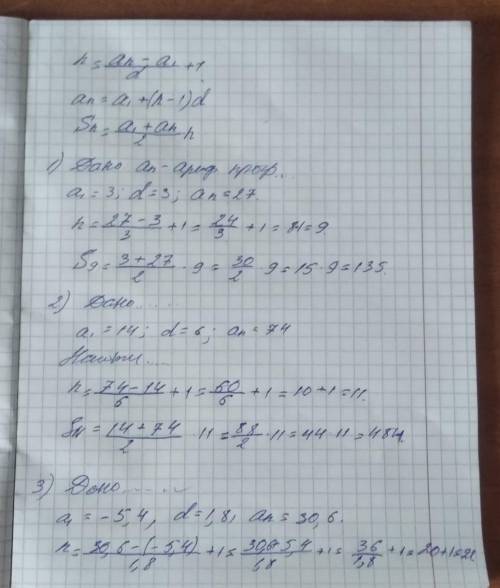 n = (an - a1)/d + 1.
an = a1 + (n - 1)d
Sn = (a1 + an)/2 n
1) Дано an - ариф. прогр..
a1 = 3; d = 3; an = 27.
n = (27 - 3)/3 + 1 = 24/3 + 1 = 8+1 = 9.
S9 = (3 + 27)/2 · 9 = 30/2 · 9 = 15 · 9 = 135.
2) Дано......
a1 = 14; d = 6; an = 74
Найти....
n = (74 - 14)/6 + 1 = 60/6 + 1 = 10 + 1 = 11.
S11 = (14 + 74)/2 · 11 = 88/2 · 11 = 44 · 11 = 484.
3) Дано......
a1 = -5,4, d = 1,8, an = 30,6.
n = (30,6 - (-5,4))/1,8 + 1 = (30,6+5,4)/1,8 + 1 = 36/1,8 + 1 = 20+1=21.